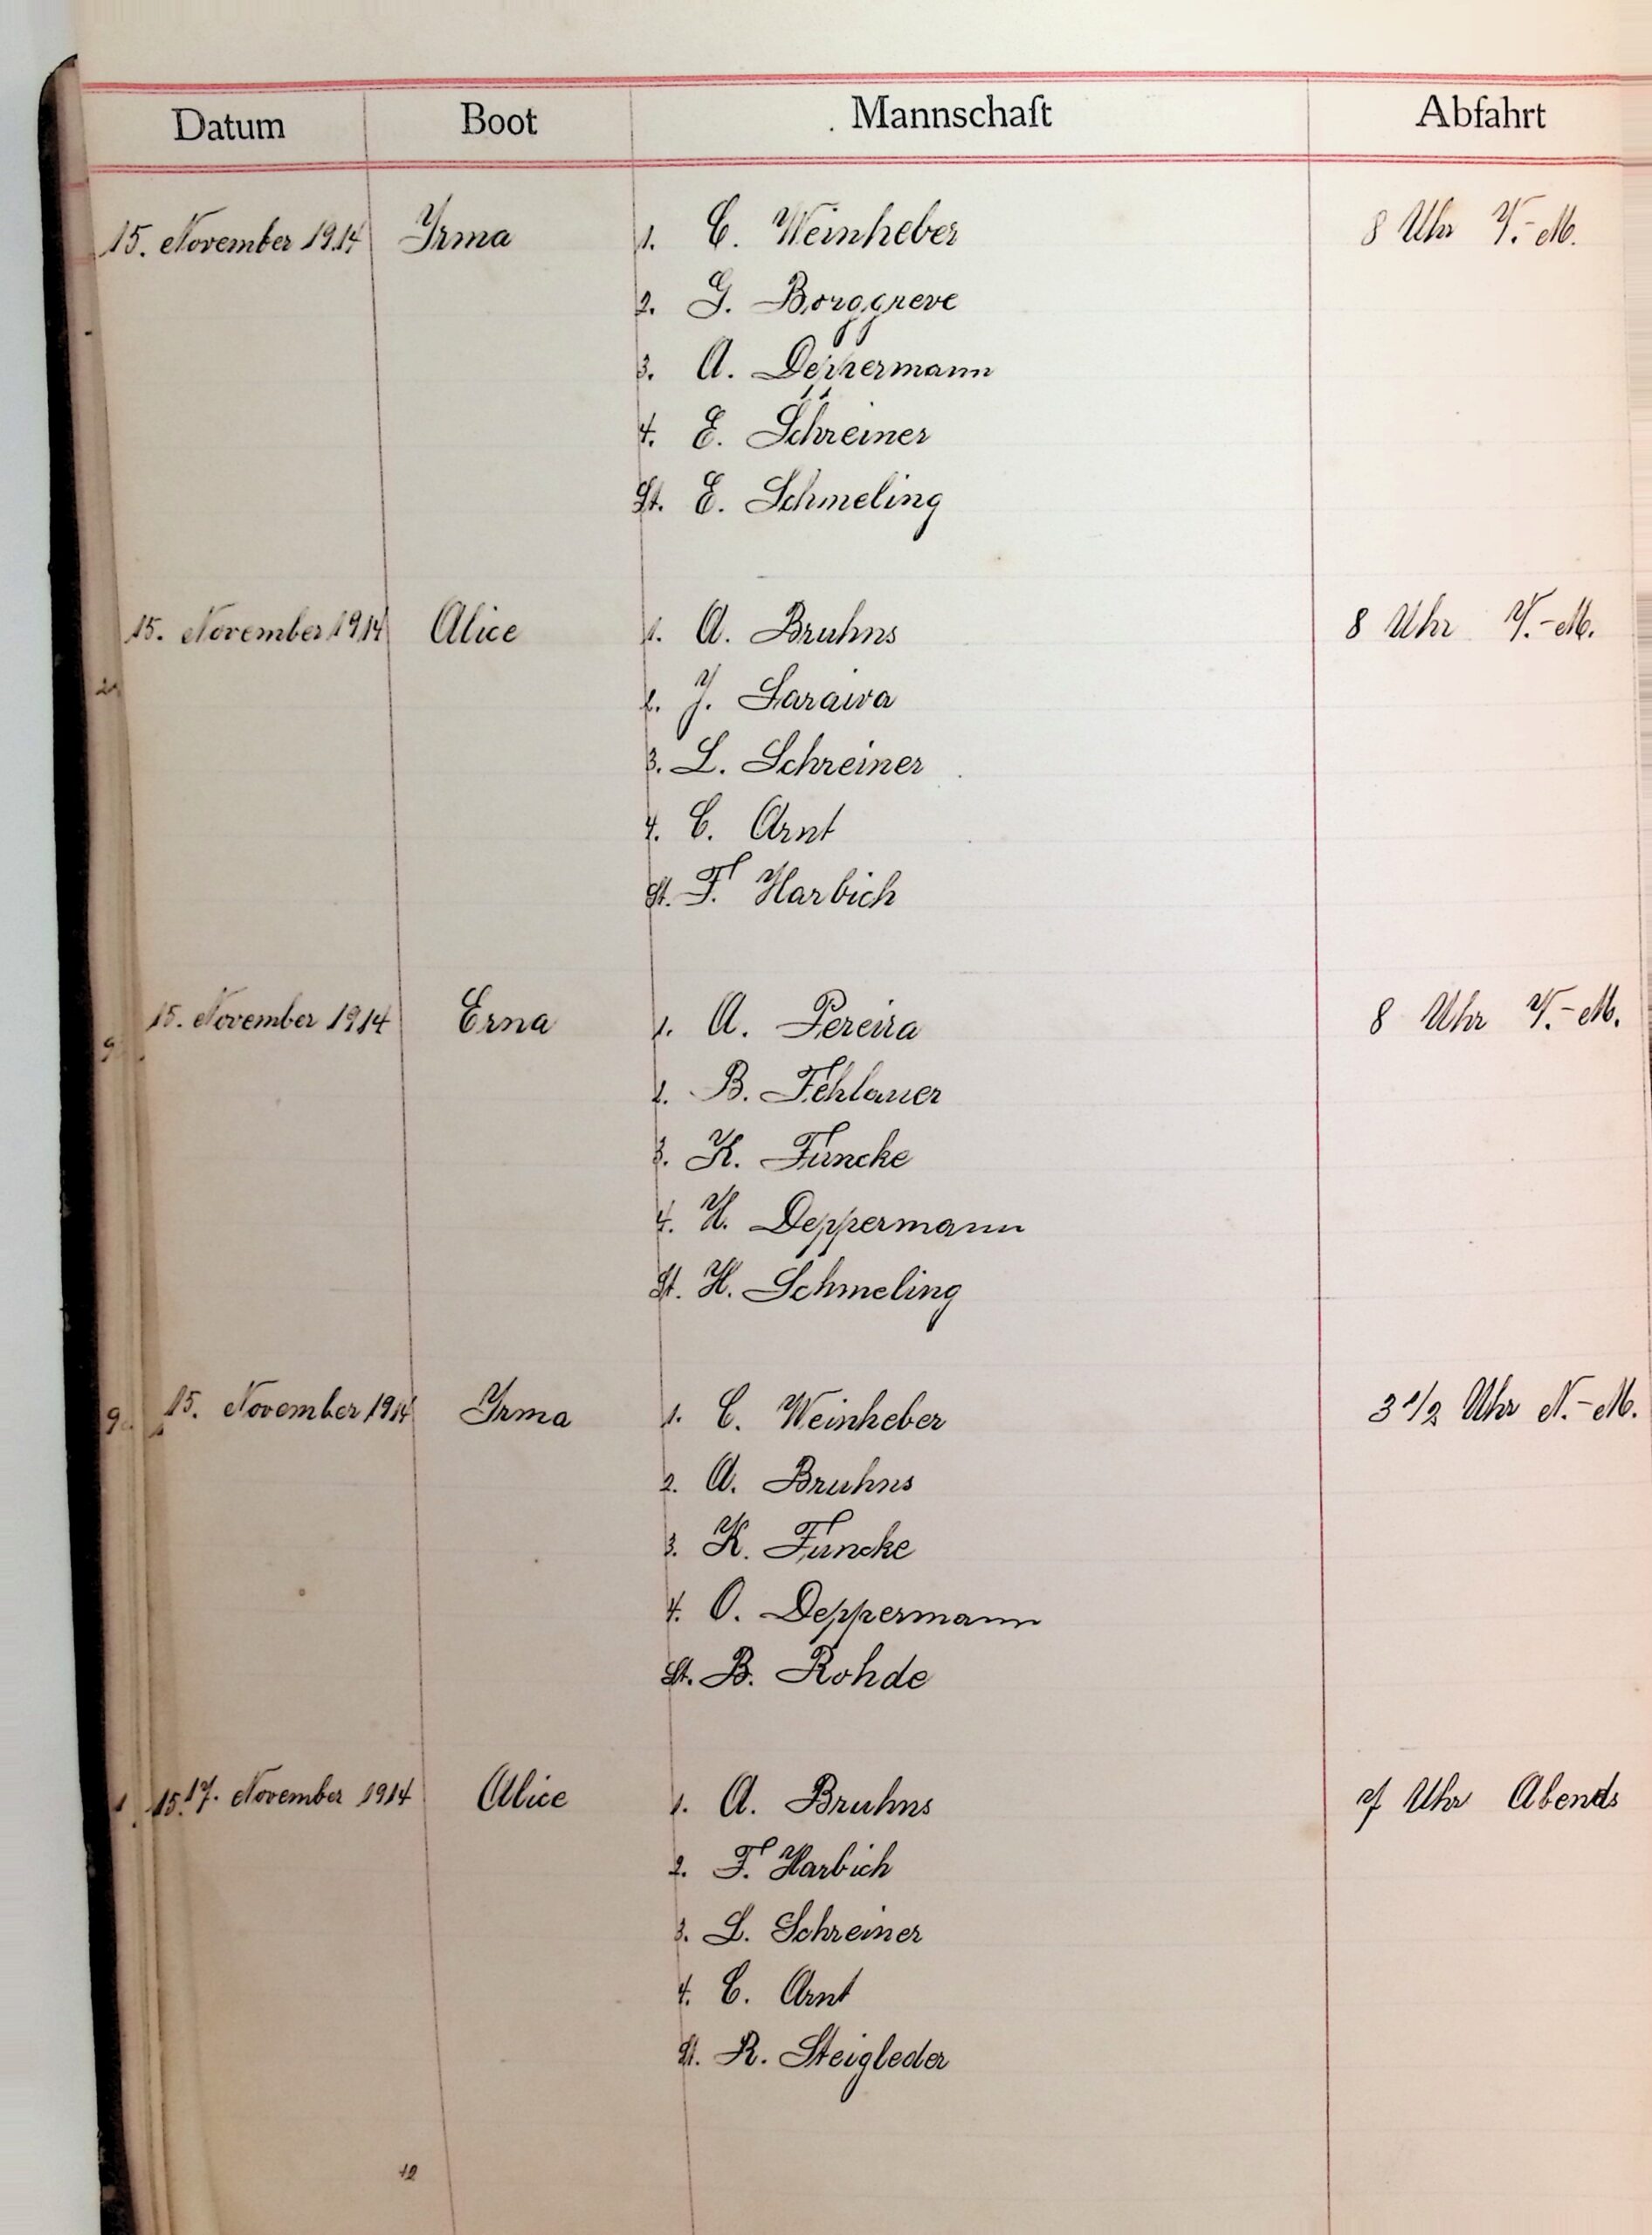 Datum Boot Mannschaft Abfahrt
15. November 1914 Yrma 1. C. Weinheber 8 Uhr V.-M.
2. G. Borggreve
3. A. Deppermann
4. E. Schreiner
St. E. Schmeling
15. November 1914 Alice 1. A. Bruhns 8 Uhr V.-M.
2. J. Saraiva
3. L. Schreiner
4. C. Arnt
St. F. Harbich
15. November 1914 Erna 1. A. Pereira 8 Uhr V.-M.
2. B. Fehlauer
3. K. Funcke
4. H. Deppermann
St. H. Schmeling
15. November 1914 Yrma 1. C. Weinheber 3 1/2 Uhr N.-M.
2. A. Bruhns
3. K. Funcke
4. O. Deppermann
St. B. Rohde
15. 17. November 1914 Alice 1. A. Bruhns 7 Uhr Abends
2. F. Harbich
3. L. Schreiner
4. C. Arnt
St. R. Steigleder